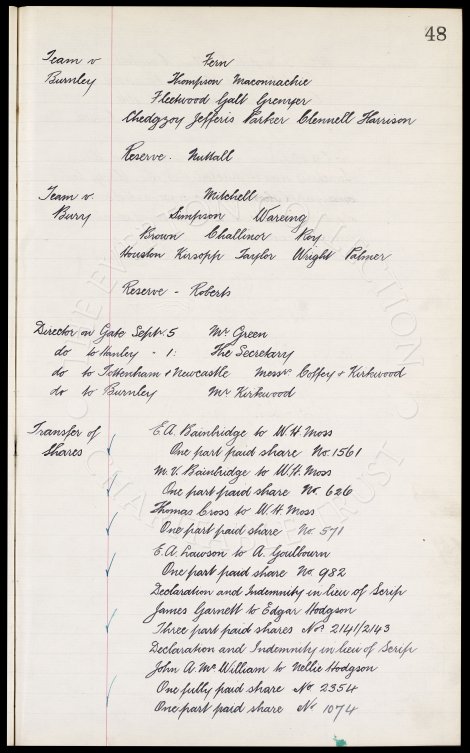 48
Team v Fern
Burnley Thompson Maconnachie
Fleetwood Galt Grenyer
Chedgzoy Jefferis Parker Clennell Harrison
Reserve. Nuttall
Team v. Mitchell
Bury Simpson Wareing
Brown Challinor Roy
Houston Kirsopp Taylor Wright Palmer
Reserve - Roberts
Director on Gate Sept. 5 Mr Green
do to Hanley - 1: The Secretary
do to Tottenham & Newcastle Messrs Coffey & Kirkwood
do to Burnley Mr Kirkwood
Transfer of E.A. Bainbridge to W.H. Moss
Shares One part paid share No. 1561
M.V. Bainbridge to W.H. Moss
One part paid share No. 626
Thomas Cross to W.H. Moss
One part paid share No. 571
E.A. Lawson to A. Goulbourn
One part paid share No. 982
Declaration and Indemnity in lieu of Scrip
James Garnett to Edgar Hodgson
Three part paid shares Nos 2141/2143
Declaration and Indemnity in lieu of Scrip
John A. McWilliam to Nellie Hodgson
One fully paid share No 2354
One part paid share No 1074